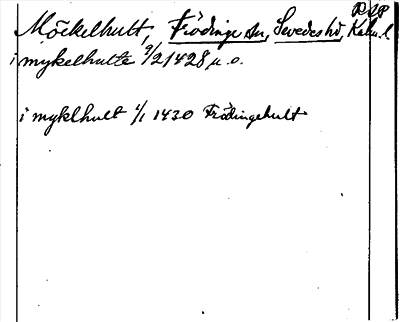 Möckelhult, Frödinge sn, Sevedes hd, Kalm. l.
i mykelhulte 9/2 1428 μ. o.
i myklhult 1/1 1430 Frödingehult